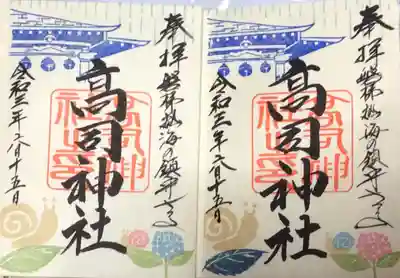 奉拝 磐梯熱海の鎮守さま
高司神社
高司神社之印
令和三年六月十五日
奉拝 磐梯熱海の鎮守さま
高司神社
高司神社之印
令和三年六月十五日